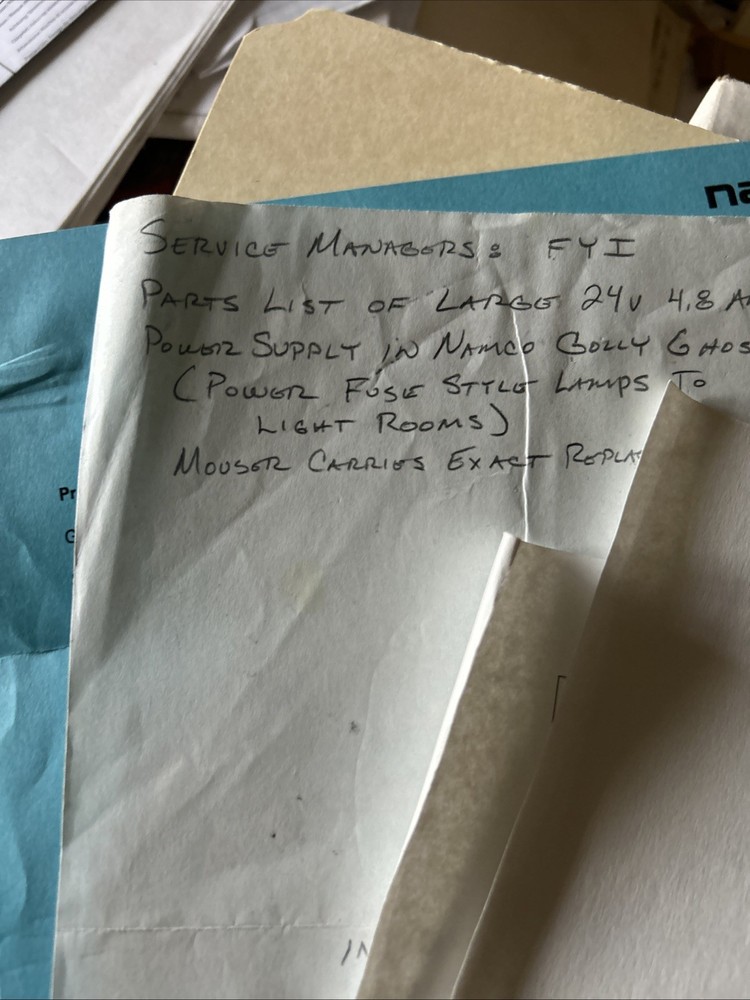 na
SERVICE MANAGERS: FYI
PARTS LIST OF LARGE 24V 4.8 A
POWER SUPPLY IN NAMCO GOLLY GHOS
(POWER FUSE STYLE LAMPS TO
LIGHT ROOMS)
MOUSER CARRIES EXACT REPLA
Pr
G
IN